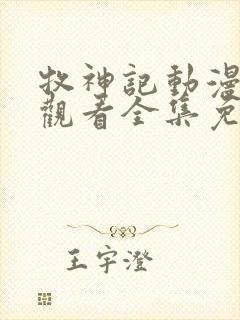 牧神記動漫
觀看全集免
王宇澄